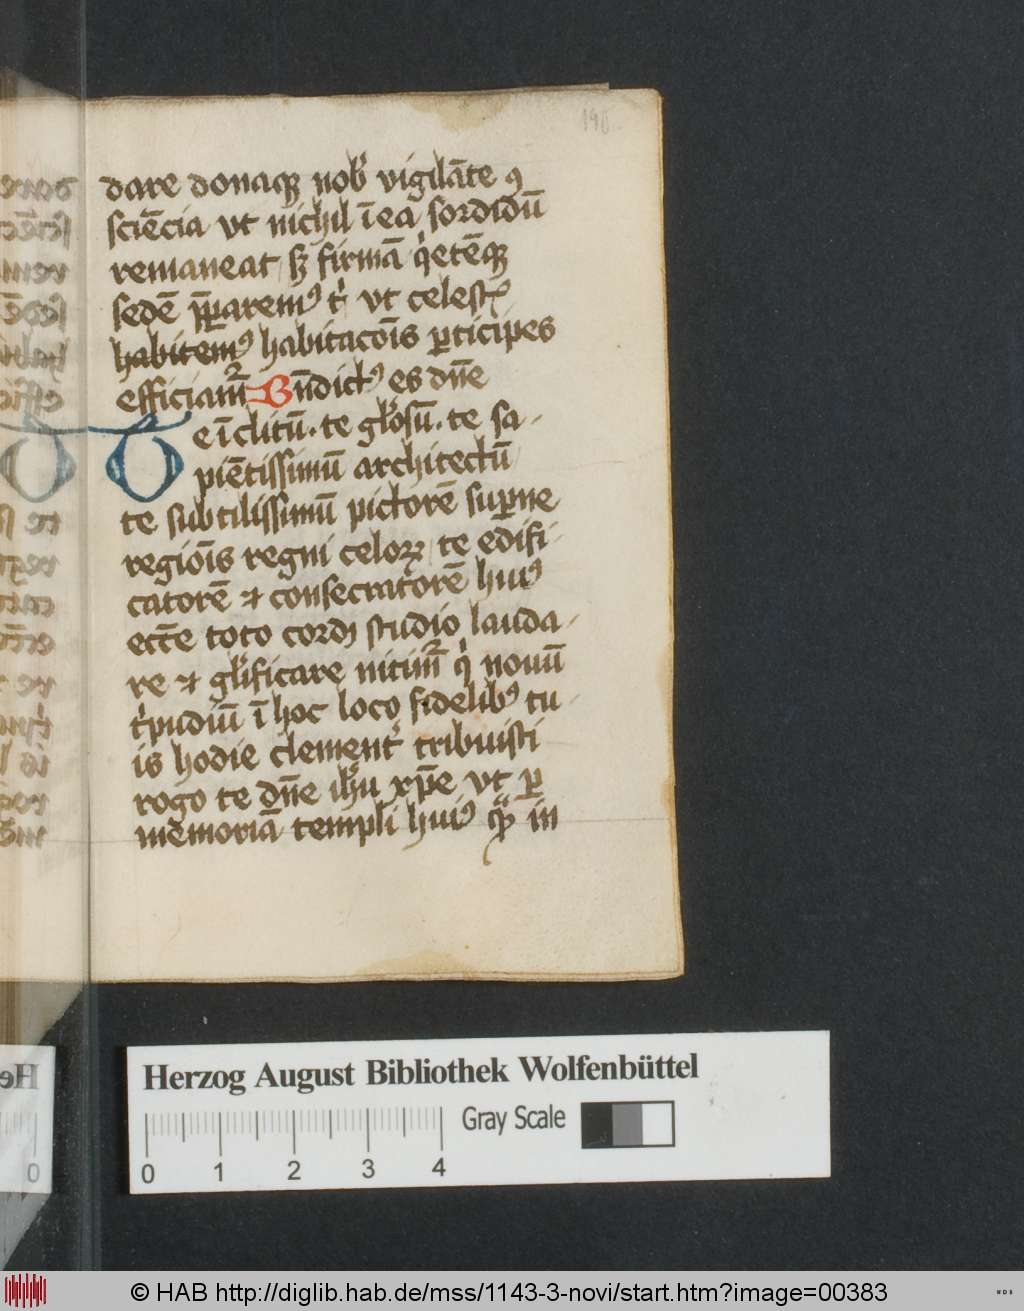 190
dare donaqꝫ nob̕ vigilāte ꝯ
sciēcia vt nichil ī ea sordidū
remaneat sꝫ firmā q̇etēqꝫ
sedē p̄paremꝰ t̕ vt celestꝭ
habitemꝰ habitacōis ꝑticipes
efficiam̄ Bn̄dictꝰ es dn̄e
Te īclitū · te gl̕osū · te sa-
piētissimū architectū
te subtilissimū pictorē suꝑne
regiōis regni celoꝝ te edifi-
catorē et consecratorē huiꝰ
ecc̄e toto cordꝭ studio lauda-
re et gl̕ificare nitim̄ q̇ nouū
t̕pudiū ī hoc loco fidelibꝰ tu-
is hodie clement̕ tribuisti
rogo te dn̄e ihū xp̄e vt ꝑ
memoriā templi huiꝰ q̄ in
Herzog August Bibliothek Wolfenbüttel
Gray Scale
0 1 2 3 4
© HAB http://diglib.hab.de/mss/1143-3-novi/start.htm?image=00383